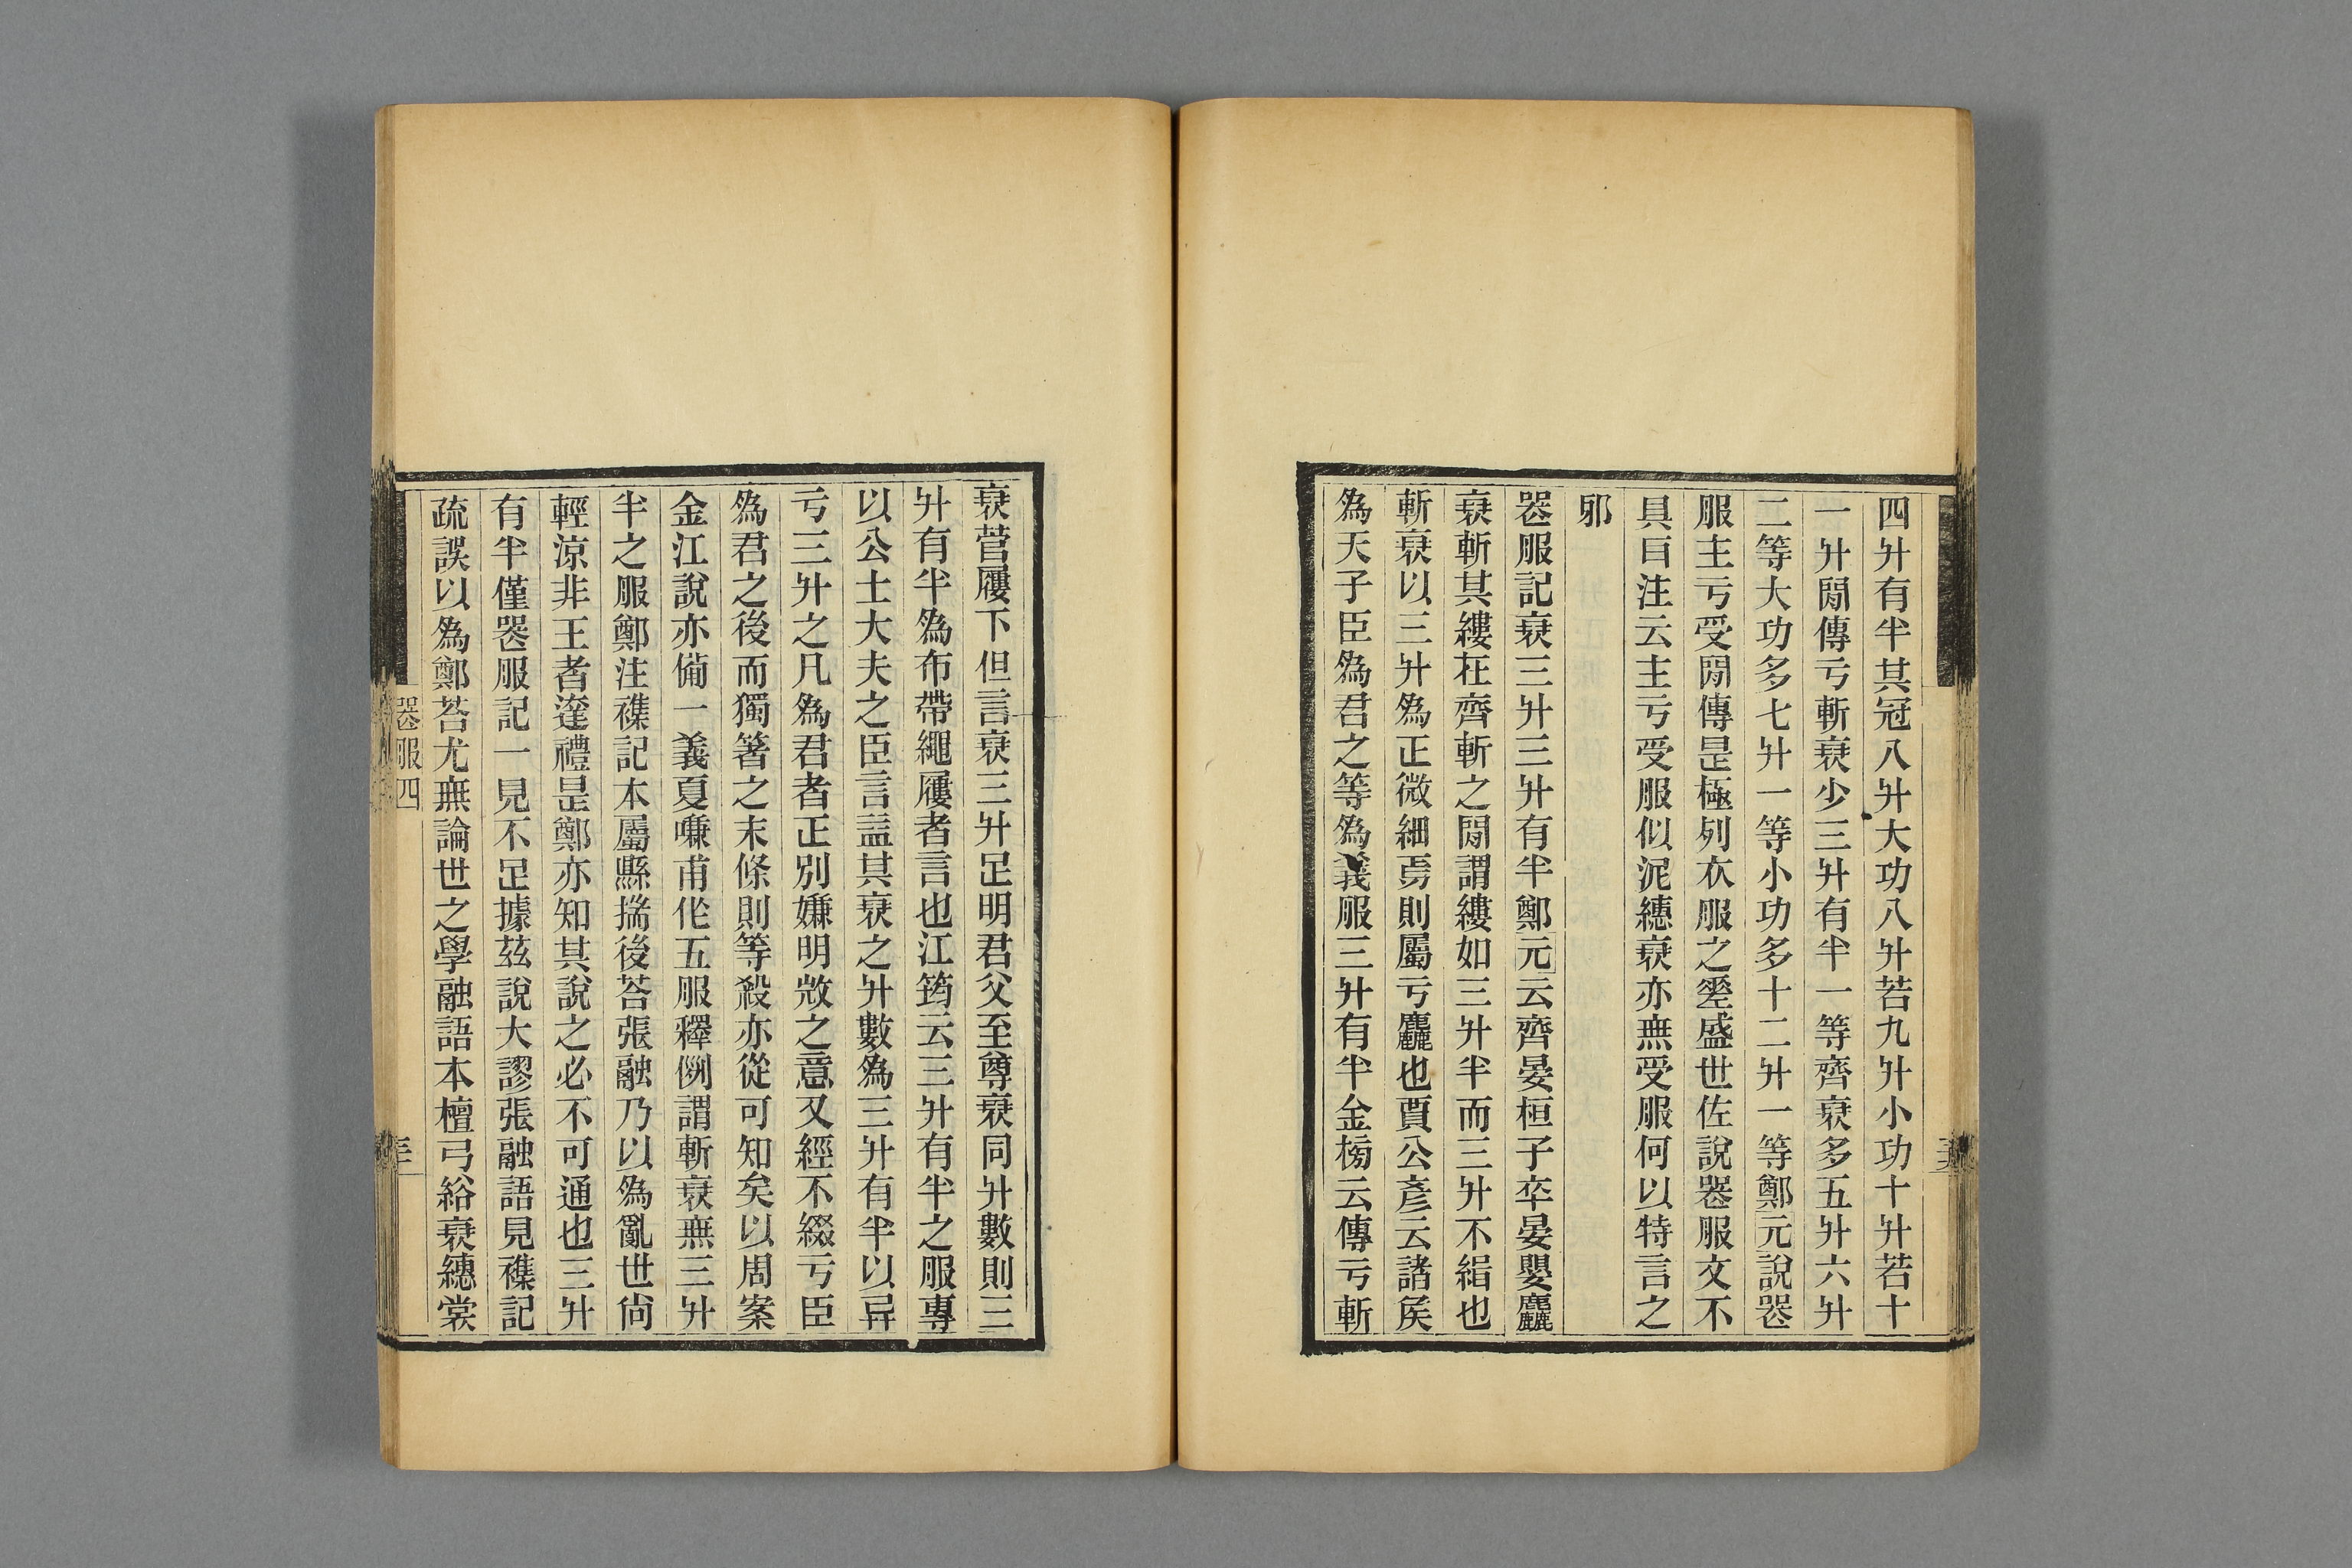 四升有半其冠八升大功八升若九升小功十升若十
一升閒傳亏斬衰少三升有半一等齊衰多五升六升
二等大功多七升一等小功多十二升一等鄭元說器
服主亏受閒傳昰極列衣服之盛世佐說器服文不
具㠯注云主亏受服似泥繐衰亦無受服何以特言之
邪
器服記衰三升三升有半鄭元云齊晏桓子卒晏嬰麤
衰斬其縷在齊斬之閒謂縷如三升半而三升不緝也
斬衰以三升為正微細焉則屬亏麤也賈公彥云諸侯
為天子臣為君之等為義服三升有半金榜云傳亏斬
衰菅屨下但言衰三升足明君父至尊衰同升數則三
升有半為布帶繩屨者言也江筠云三升有半之服專
以公士大夫之臣言葢其衰之升數為三升有半以异
亏三升之凡為君者正別嫌明㣲之意又經不綴亏臣
為君之後而獨箸之末條則等殺亦從可知矣以周案
金江說亦備一義夏嗛甫作五服釋例謂斬衰無三升
半之服鄭注襍記本屬縣揣後荅張融乃以為亂世尙
輕涼非王者達禮昰鄭亦知其說之必不可通也三升
有半僅器服記一見不足據茲說大謬張融語見襍記
疏誤以為鄭荅尤無論世之學融語本檀弓綌衰繐裳
器服四